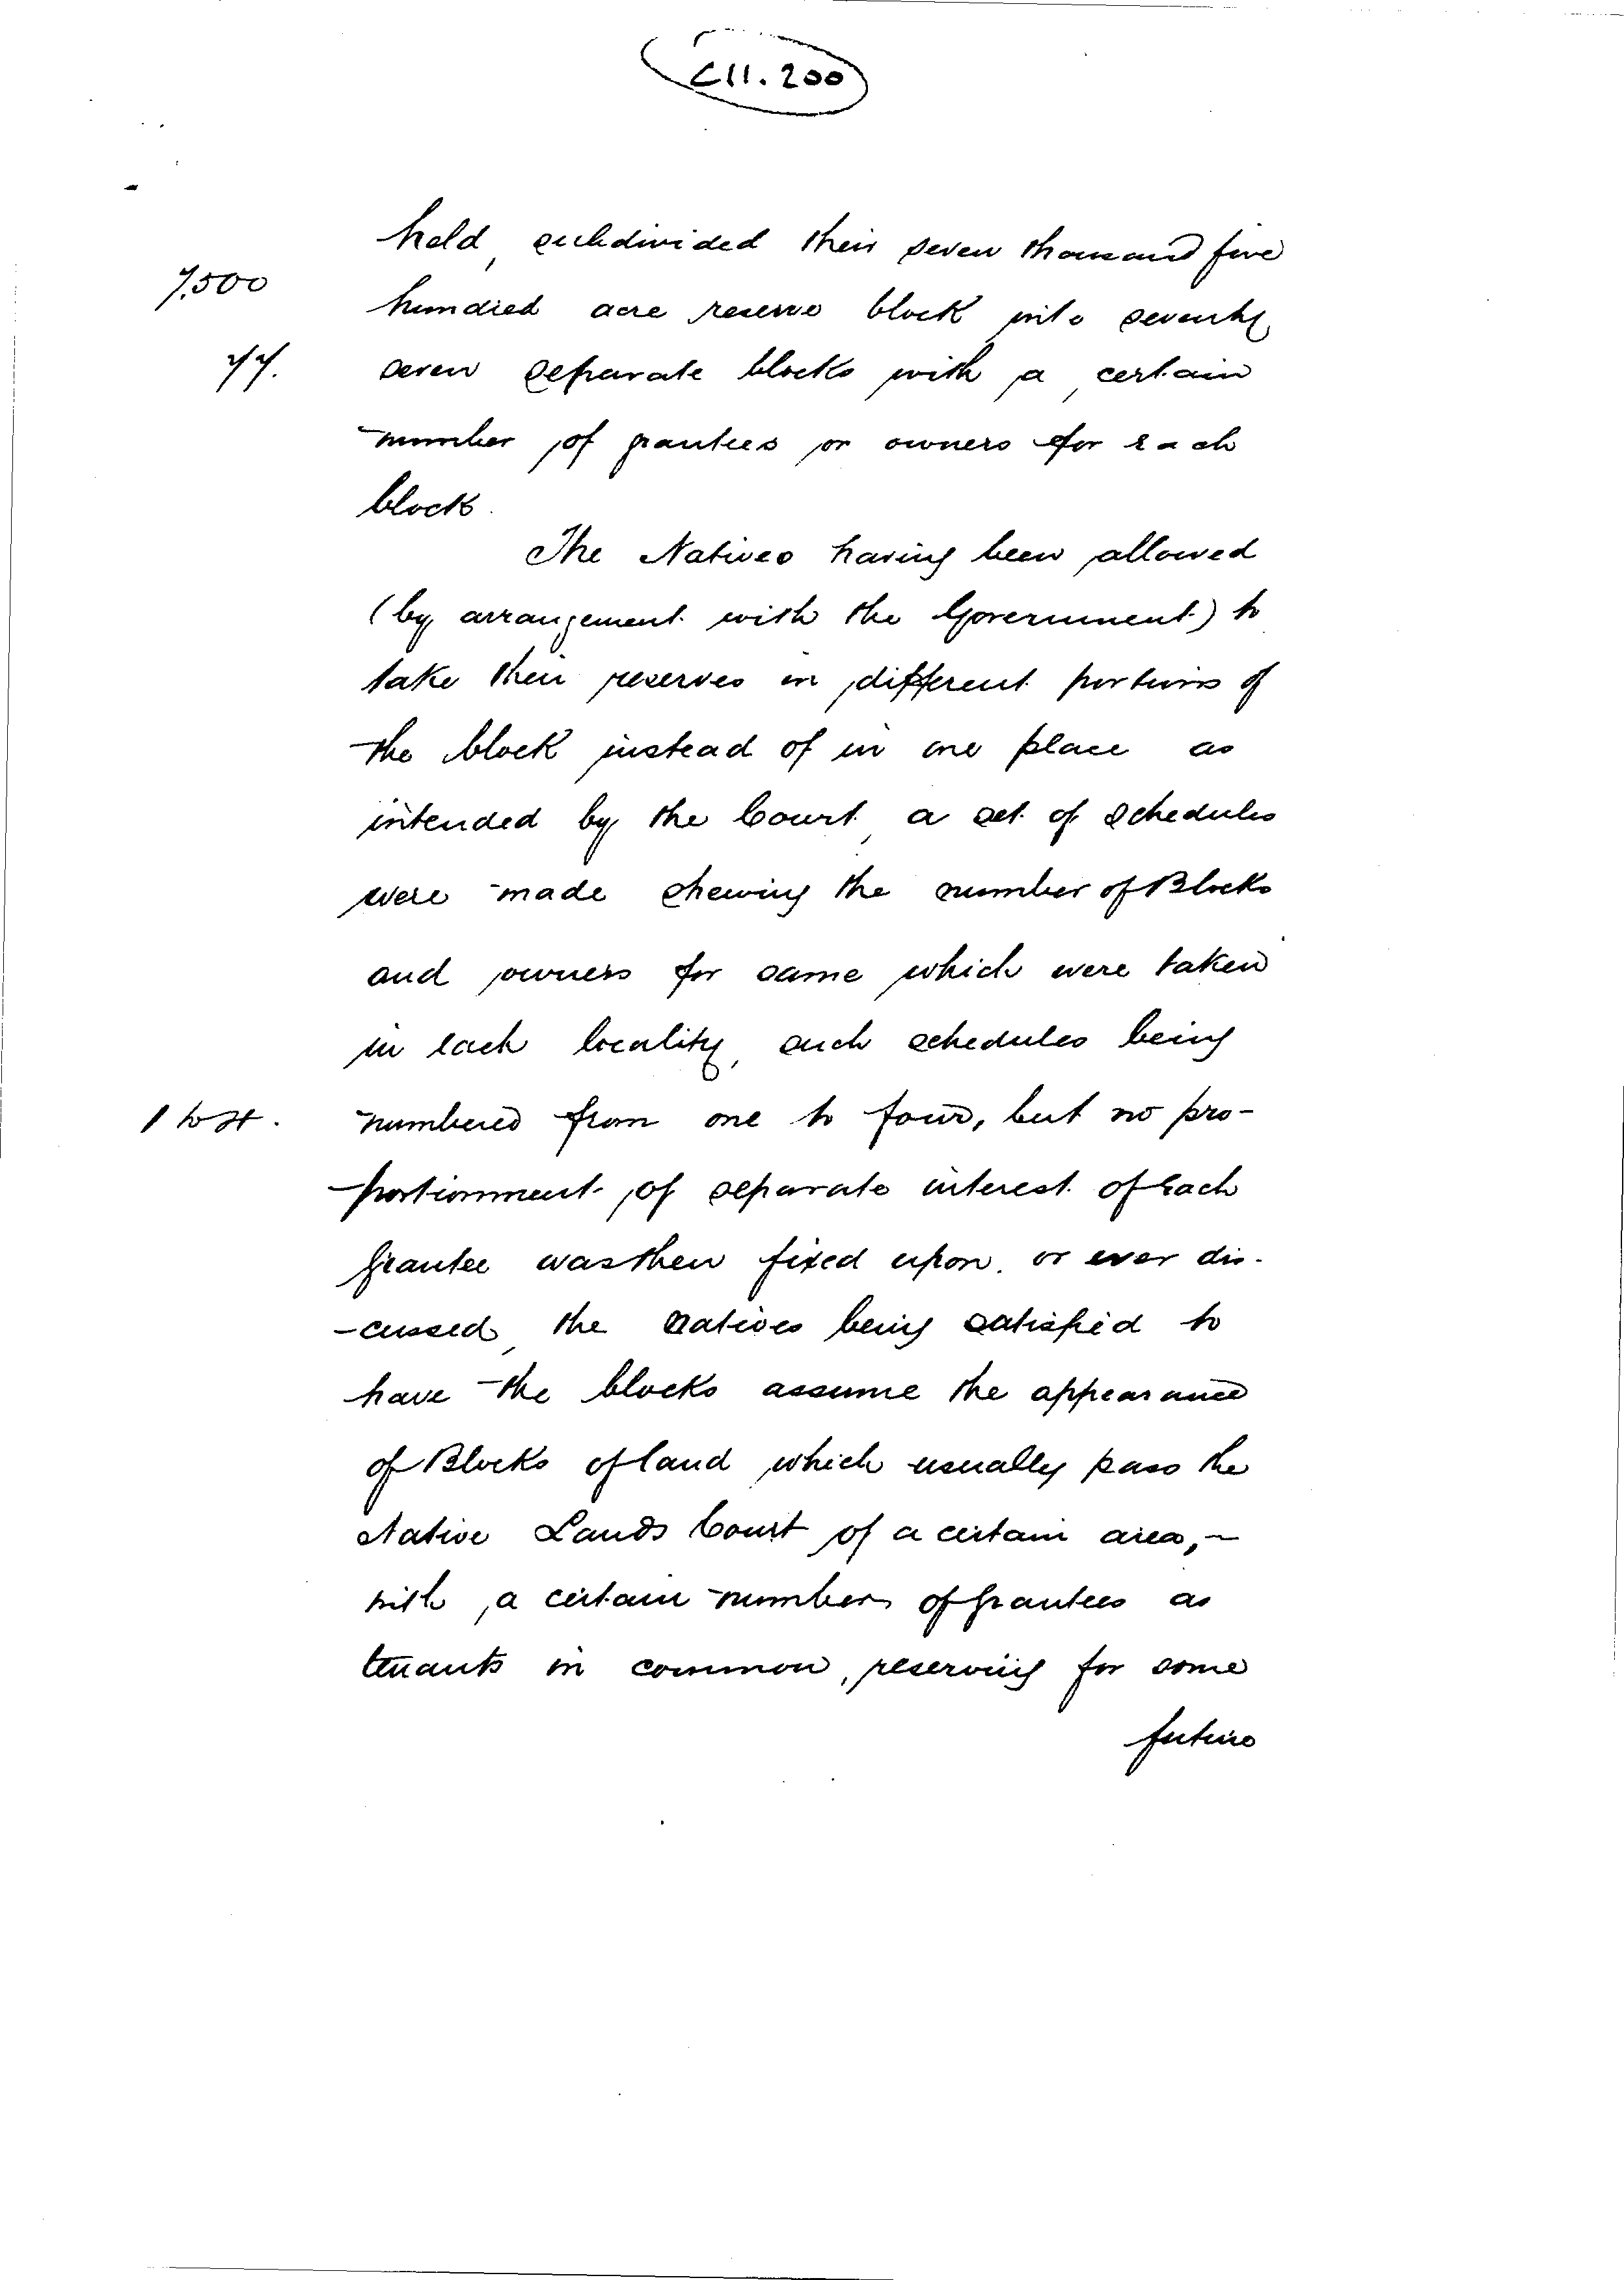 C11.200
held, subdivided their seven thousand five
7,500 hundred acre reserve block into seventy
77. seven separate blocks with a certain
number of grantees or owners for each
block.
The Natives having been allowed
(by arrangement with the Government) to
take their reserves in different portions of
the block instead of in one place as
intended by the Court, a set of schedules
were made shewing the number of Blocks
and owners for same which were taken
in each locality, such schedules being
1 to 4. numbered from one to four, but no pro-
-portionment of separate interest of each
grantee was then fixed upon. or ever dis-
-cussed, the natives being satisfied to
have the blocks assume the appearance
of Blocks of land which usually pass the
Native Lands Court of a certain area,-
with a certain number of grantees as
tenants in common, reserving for some
future